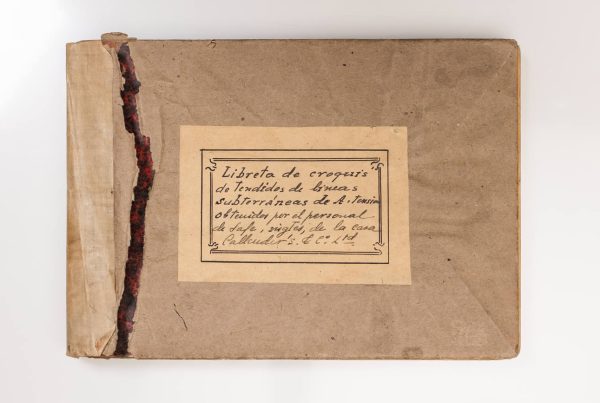 Libreta de croquis
de Tendidos de líneas
subterráneas de A. Tensión
obtenidos por el personal
de Safe, inglés, de la casa
Callender's. & Cº. Ltd